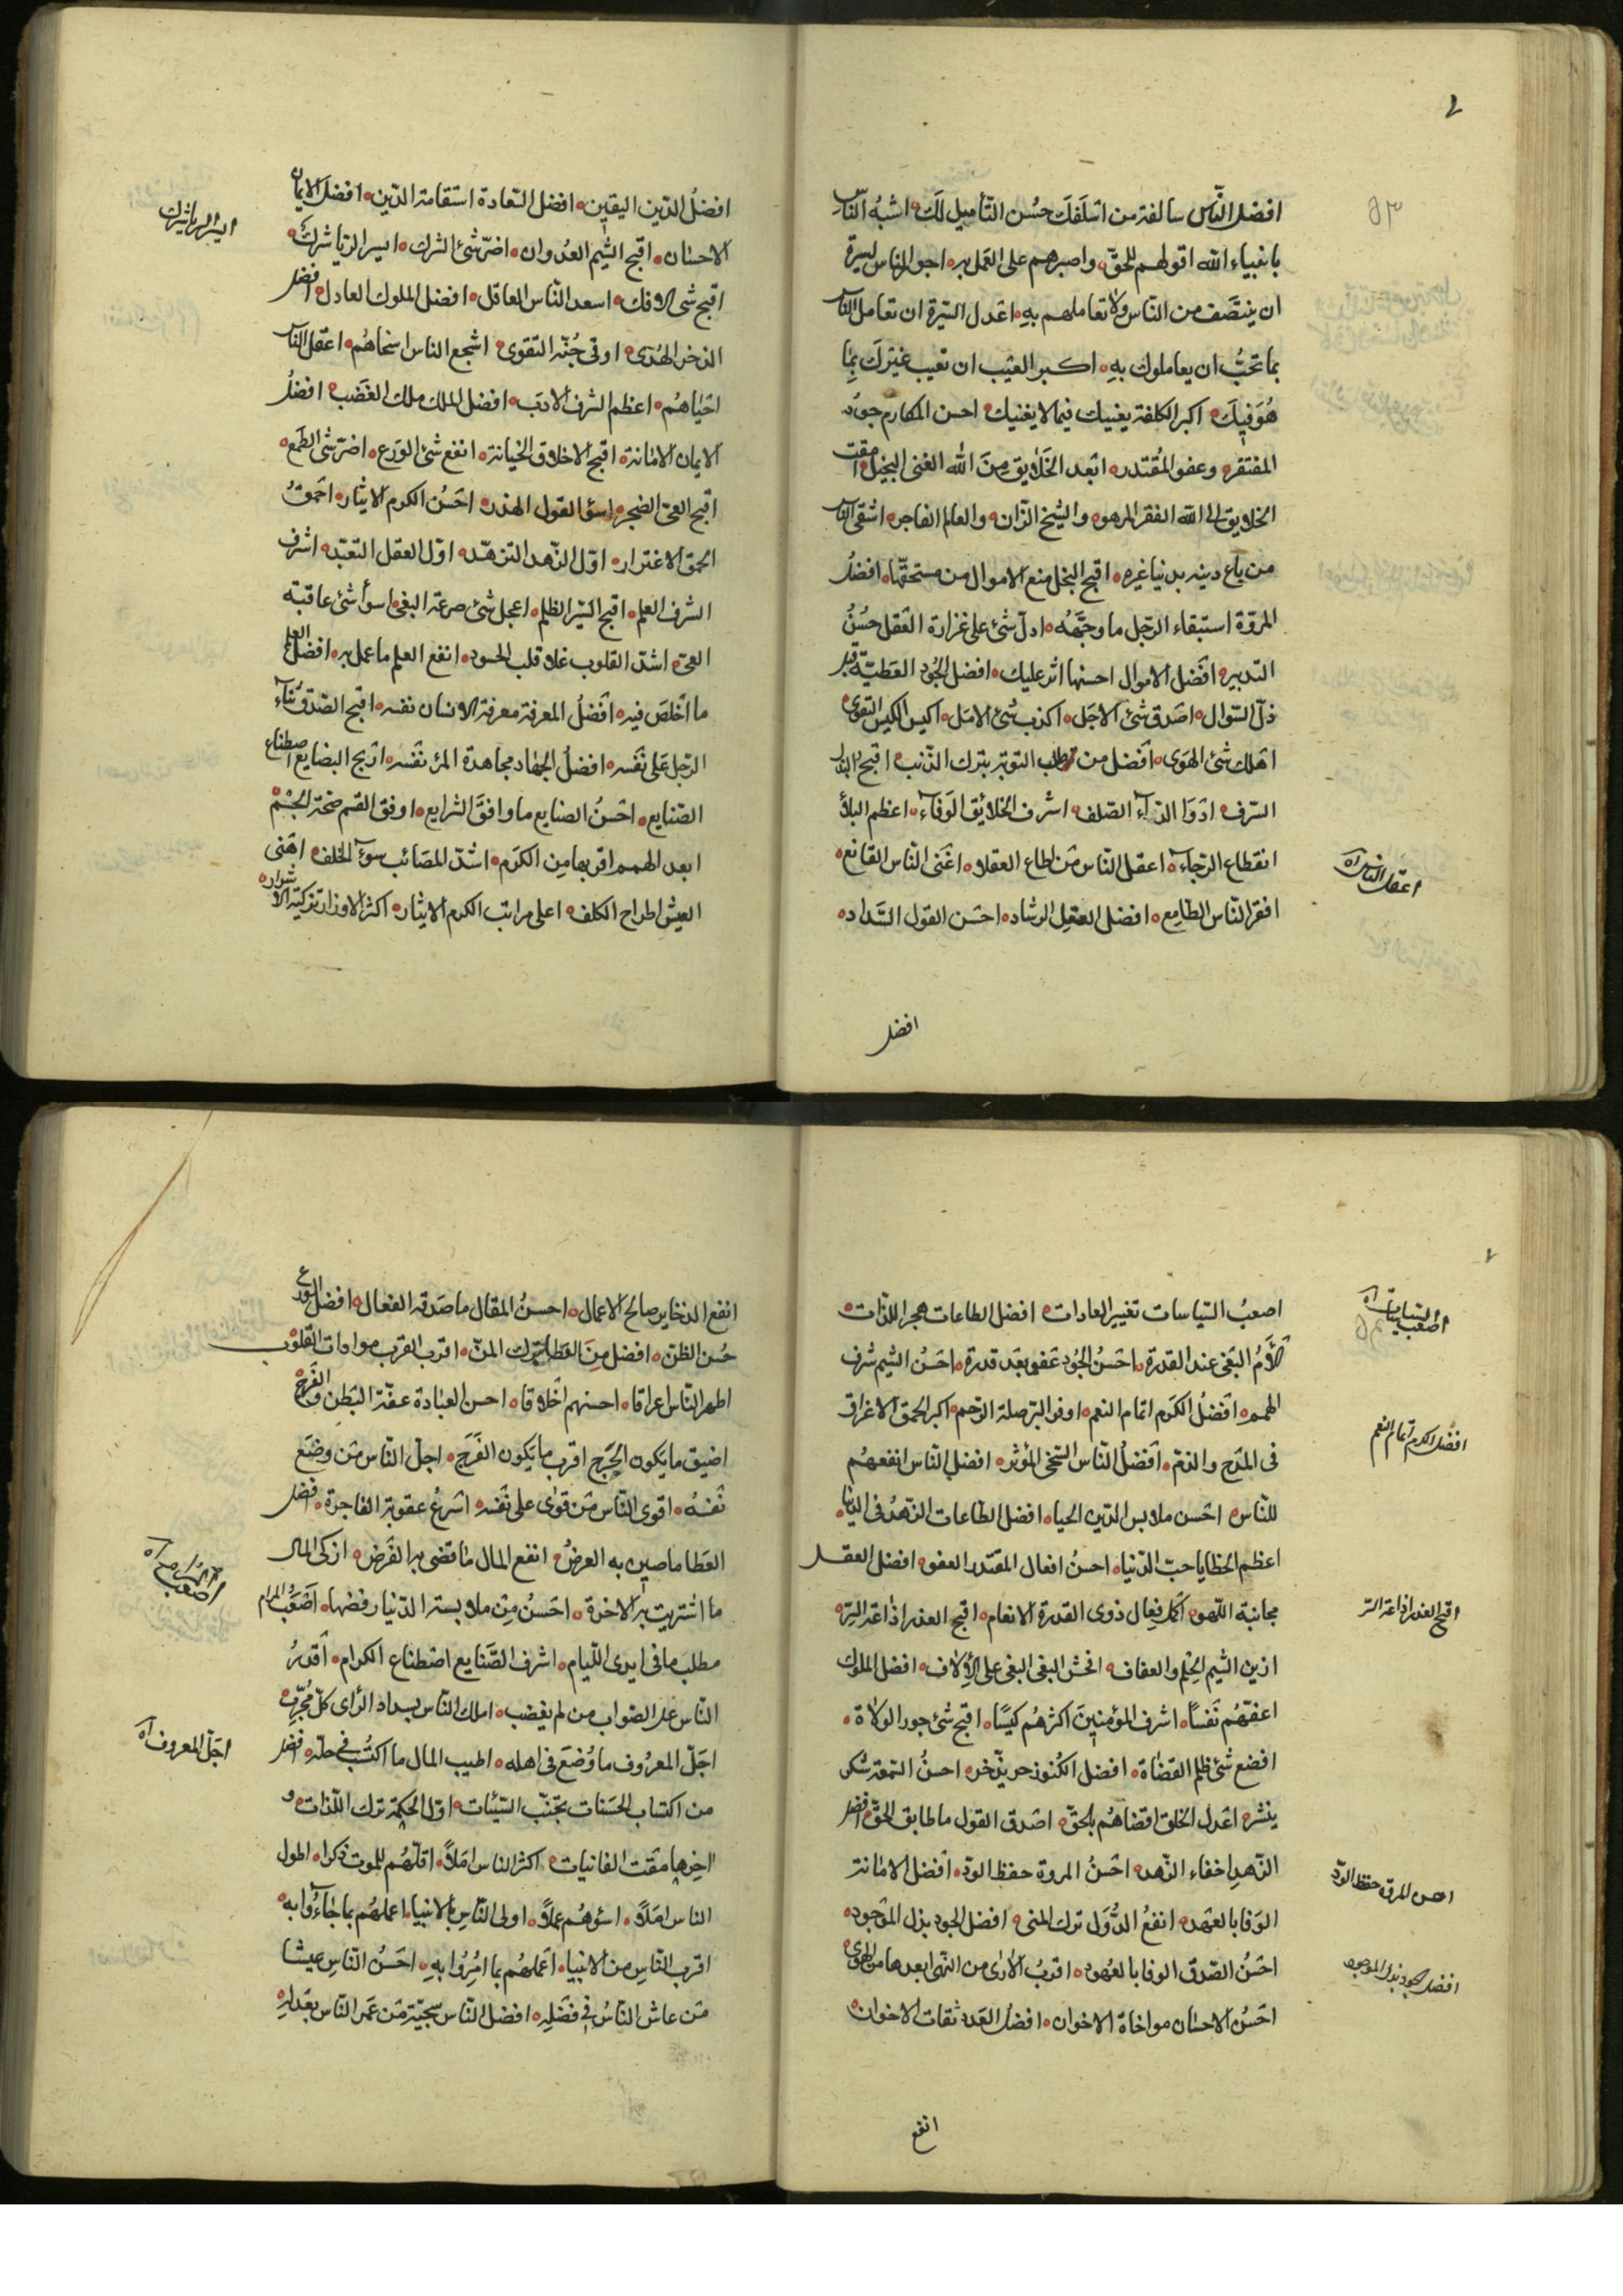 افضل الناس سالفة من اسلفك حسن التأميل لك اشبه الناس
بانبياء الله اقولهم للحق واصبرهم على العمل به اجور الناس سيرة
ان ينتصف من الناس ولا تعاملهم به اعدل السيرة ان تعامل الناس
بما تحب ان يعاملوك به اكبر العيب ان تعيب غيرك بما
هو فيك اكبر الكلفة يغنيك فيما لا يغنيك احسن المكارم جود
المفتقر وعفو المقتدر ابعد الخلايق من الله الغنى البخيل امقت
الخلايق الى الله الفقر المزهو والشيخ الزان والعالم الفاجر اشقى الناس
من باع دينه بدنيا غيره اقبح البخل منع الاموال من مستحقها افضل
المروة استبقاء الرجل ما وجهه ادل شئ على غزارة العقل حسن
التدبير افضل الاموال احسنها اثر عليك افضل الجود العطية قبل
ذل السوال اصدق شئ الاجل اكذب شئ الامل اكيس الكيس التقوى
اهلك شئ الهوى افضل من طلب التوبة ترك الذنب اقبح البذل
السرف ادوا الداء الصلف اشرف الخلائق الوفاء اعظم البلاء
انقطاع الرجاء اعقل الناس من اطاع العقلاء اغنى الناس القانع
اعقل الناس اه
افقر الناس الطامع افضل العقل الرشاد احسن القول السداد
افضل
افضل الدين اليقين افضل السعادة استقامة الدين افضل الايمان
ايسر الريا شرك
الاحسان اقبح الشيم العدوان اضر شئ الشرك ايسر الريا شرك
اقبح شى الافك اسعد الناس العاقل افضل الملوك العادل افضل
الذخر الهدى اوقى جنة التقوى اشجع الناس اسخاهم اعقل الناس
احياهم اعظم الشرف الادب افضل الملك ملك الغضب افضل
الايمان الامانة اقبح الاخلاق الخيانة انفع شئ الورع اضر شئ الطمع
اقبح العى الضجر اسؤ القول الهذر احسن الكرم الايثار احمق
الحمق الاغترار اول الزهد التزهد اول العقل التعبد اشرف
الشرف العلم اقبح السير الظلم اعجل شئ صرعة البغى اسوأ شئ عاقبة
الغى اشد القلوب غلا قلب الحسود انفع العلم ما عمل به افضل العلم
ما اخلص فيه افضل المعرفة معرفة الانسان نفسه اقبح الصدق ثناء
الرجل على نفسه افضل الجهاد مجاهدة المرء نفسه اربح البضايع اصطناع
الصنايع احسن الصنايع ما وافق الشرايع اوفق القسم صحة الجسم
ابعد الهمم اقربها من الكرم اشد المصائب سوء الخلف اهنى
العيش اطراح الكلف اعلى مراتب الكرم الايثار اكثر الاوزار تزكية الاشرار
اصعب السياسات تغيير العادات افضل الطاعات هجر اللذات
اصعب السياسات اه
ألأم البغى عند القدرة احسن الجود عفو بعد قدرة احسن الشيم شرف
الهمم افضل الكرم اتمام النعم اوفر البر صلة الرحم اكبر الحمق الاغراق
افضل الكرم اتمام النعم
فى المدح والذم افضل الناس السخى المؤثر افضل الناس انفعهم
للناس احسن ملابس الدين الحيا افضل الطاعات الزهد فى الدنيا
اعظم الخطايا حب الدنيا احسن افعال المقتدر العفو افضل العقل
مجانبة اللهو اكمل فعال ذوى القدرة الانعام اقبح الغدر اذاعة السر
اقبح الغدر اذاعة السر
ازين الشيم الحلم والعفاف افحش البغى البغى على الألاف افضل الملوك
اعفهم نفسا اشرف المؤمنين اكثرهم كيسا اقبح شئ جور الولاة
افضع شئ ظلم القضاة افضل الكنوز حر يذخر احسن السمعة شكر
ينشر اعدل الخلق اقضاهم بالحق اصدق القول ما طابق الحق افضل
الزهد اخفاء الزهد احسن المروة حفظ الود افضل الامانة
احسن المروة حفظ الود
الوفا بالعهد انفع الدول ترك المنى افضل الجود بذل الموجود
افضل الجود بذل الموجود
احسن الصدق الوفا بالعهود اقرب الارى من النهى ابعدها من الهوى
احسن الاحسان مواخاة الاخوان افضل العدد ثقات الاخوان
انفع
انفع الذخاير صالح الاعمال احسن المقال ما صدقه الفعال افضل الورع
حسن الظن افضل من العطا ترك المن اقرب القرب موادات القلوب
اطهر الناس اعراقا احسنهم اخلاقا احسن العبادة عفة البطن والفرج
اضيق ما يكون الحرج اقرب ما يكون الفرج اجل الناس من وضع
نفسه اقوى الناس من قوى على نفسه اشرع عقوبة الفاجرة افضل
العطا ما صين به العرض انفع المال ما قضى به الفرض ازكى المال
ما اشتريت به الاخرة احسن من ملابسة الدنيا رفضها اصعب المرام
اصعب المرام اه
مطلب ما فى ايدى اللئام اشرف الصنايع اصطناع الكرام اقدر
الناس على الصواب من لم يغضب املك الناس بسداد الراى كل مجرب
اجل المعروف ما وضع فى اهله اطيب المال ما اكتسب فى حله افضل
اجل المعروف اه
من اكتساب الحسنات تجنب السيئات اول الحكمة ترك اللذات و
اخرها مقت الفانيات اكثر الناس املا اقلهم للموت ذكرا اطول
الناس املا اسؤهم عملا اولى الناس بالانبيا اعملهم بما جاءوا به
اقرب الناس من الانبيا اعملهم بما امروا به احسن الناس عيشا
من عاش الناس فى فضله افضل الناس سجية من عم الناس بعدله